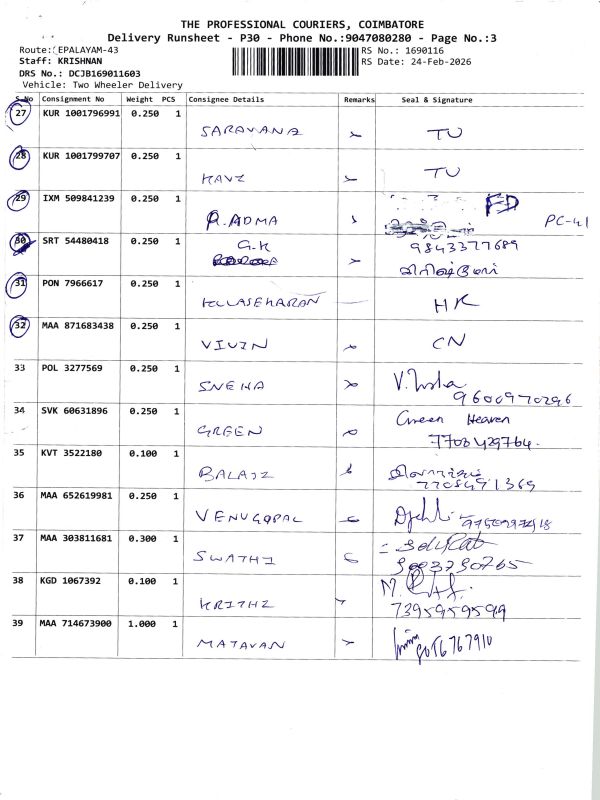 THE PROFESSIONAL COURIERS, COIMBATORE
Delivery Runsheet - P30 - Phone No.:9047080280 - Page No.:3
Route: EPALAYAM-43
RS No.: 1690116
Staff: KRISHNAN
RS Date: 24-Feb-2026
DRS No.: DCJB169011603
Vehicle: Two Wheeler Delivery
S.No Consignment No Weight PCS Consignee Details Remarks Seal & Signature
27 KUR 1001796991 0.250 1
SARAVANA TU
28 KUR 1001799707 0.250 1
KAVI TU
29 IXM 509841239 0.250 1 FD
R.ADMA PC-41
30 SRT 54480418 0.250 1 G.K 9843377689
31 PON 7966617 0.250 1
KULASEKARAN HK
32 MAA 871683438 0.250 1
VIVIN CN
33 POL 3277569 0.250 1
SNEHA 9600970296
34 SVK 60631896 0.250 1 Green Heaven
GREEN 7708429764.
35 KVT 3522180 0.100 1
BALAJI 7708491369
36 MAA 652619981 0.250 1
VENUGOPAL
37 MAA 303811681 0.300 1
SWATHI
38 KGD 1067392 0.100 1
KRITHI 7395959599
39 MAA 714673900 1.000 1
MATAVAN